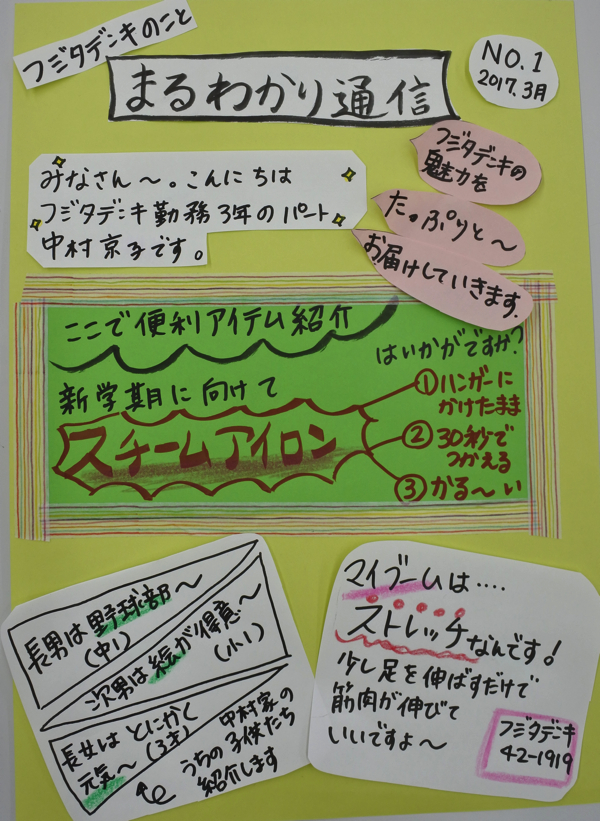 フジタデンキのこと
まるわかり通信
NO.1
2017.3月
フジタデンキの
魅力を
たっぷりと〜
お届けしていきます.
みなさん〜。こんにちは
フジタデンキ勤務3年のパート
中村京子です。
ここで便利アイテム紹介
はいかがですか?
新学期に向けて
スチームアイロン
①ハンガーに
かけたまま
②30秒で
つかえる
③かる〜い
長男は野球部〜
(中1)
次男は絵が得意〜
(小1)
長女はとにかく
元気〜(3才)
中村家の
うちの子供たち
紹介します
マイブームは....
ストレッチなんです!
少し足を伸ばすだけで
筋肉が伸びて
いいですよ〜
フジタデンキ
42-1919